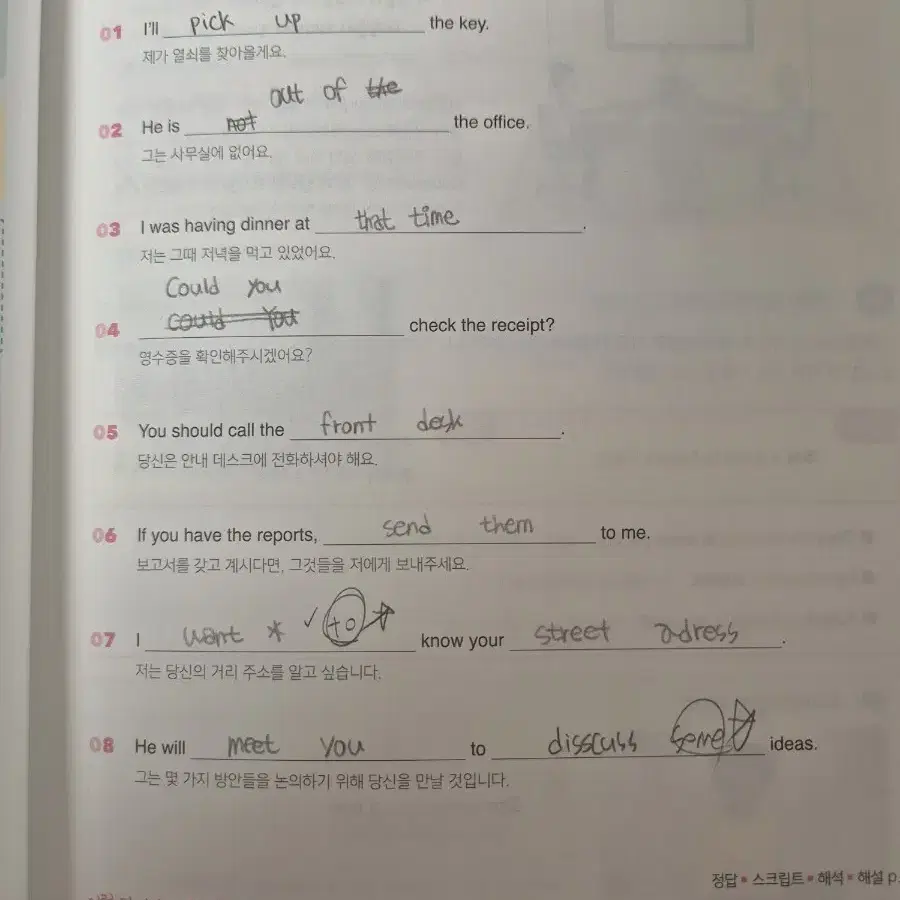 01 I'll pick up the key.
제가 열쇠를 찾아올게요.
out of the
02 He is not the office.
그는 사무실에 없어요.
03 I was having dinner at that time.
저는 그때 저녁을 먹고 있었어요.
Could you
04 could you check the receipt?
영수증을 확인해주시겠어요?
05 You should call the front desk.
당신은 안내 데스크에 전화하셔야 해요.
06 If you have the reports, send them to me.
보고서를 갖고 계시다면, 그것들을 저에게 보내주세요.
07 I want * ✓ to ☆ know your street adress.
저는 당신의 거리 주소를 알고 싶습니다.
08 He will meet you to disscuss some ☆ ideas.
그는 몇 가지 방안들을 논의하기 위해 당신을 만날 것입니다.
정답 ▪ 스크립트 ▪ 해석 ▪ 해설 p.